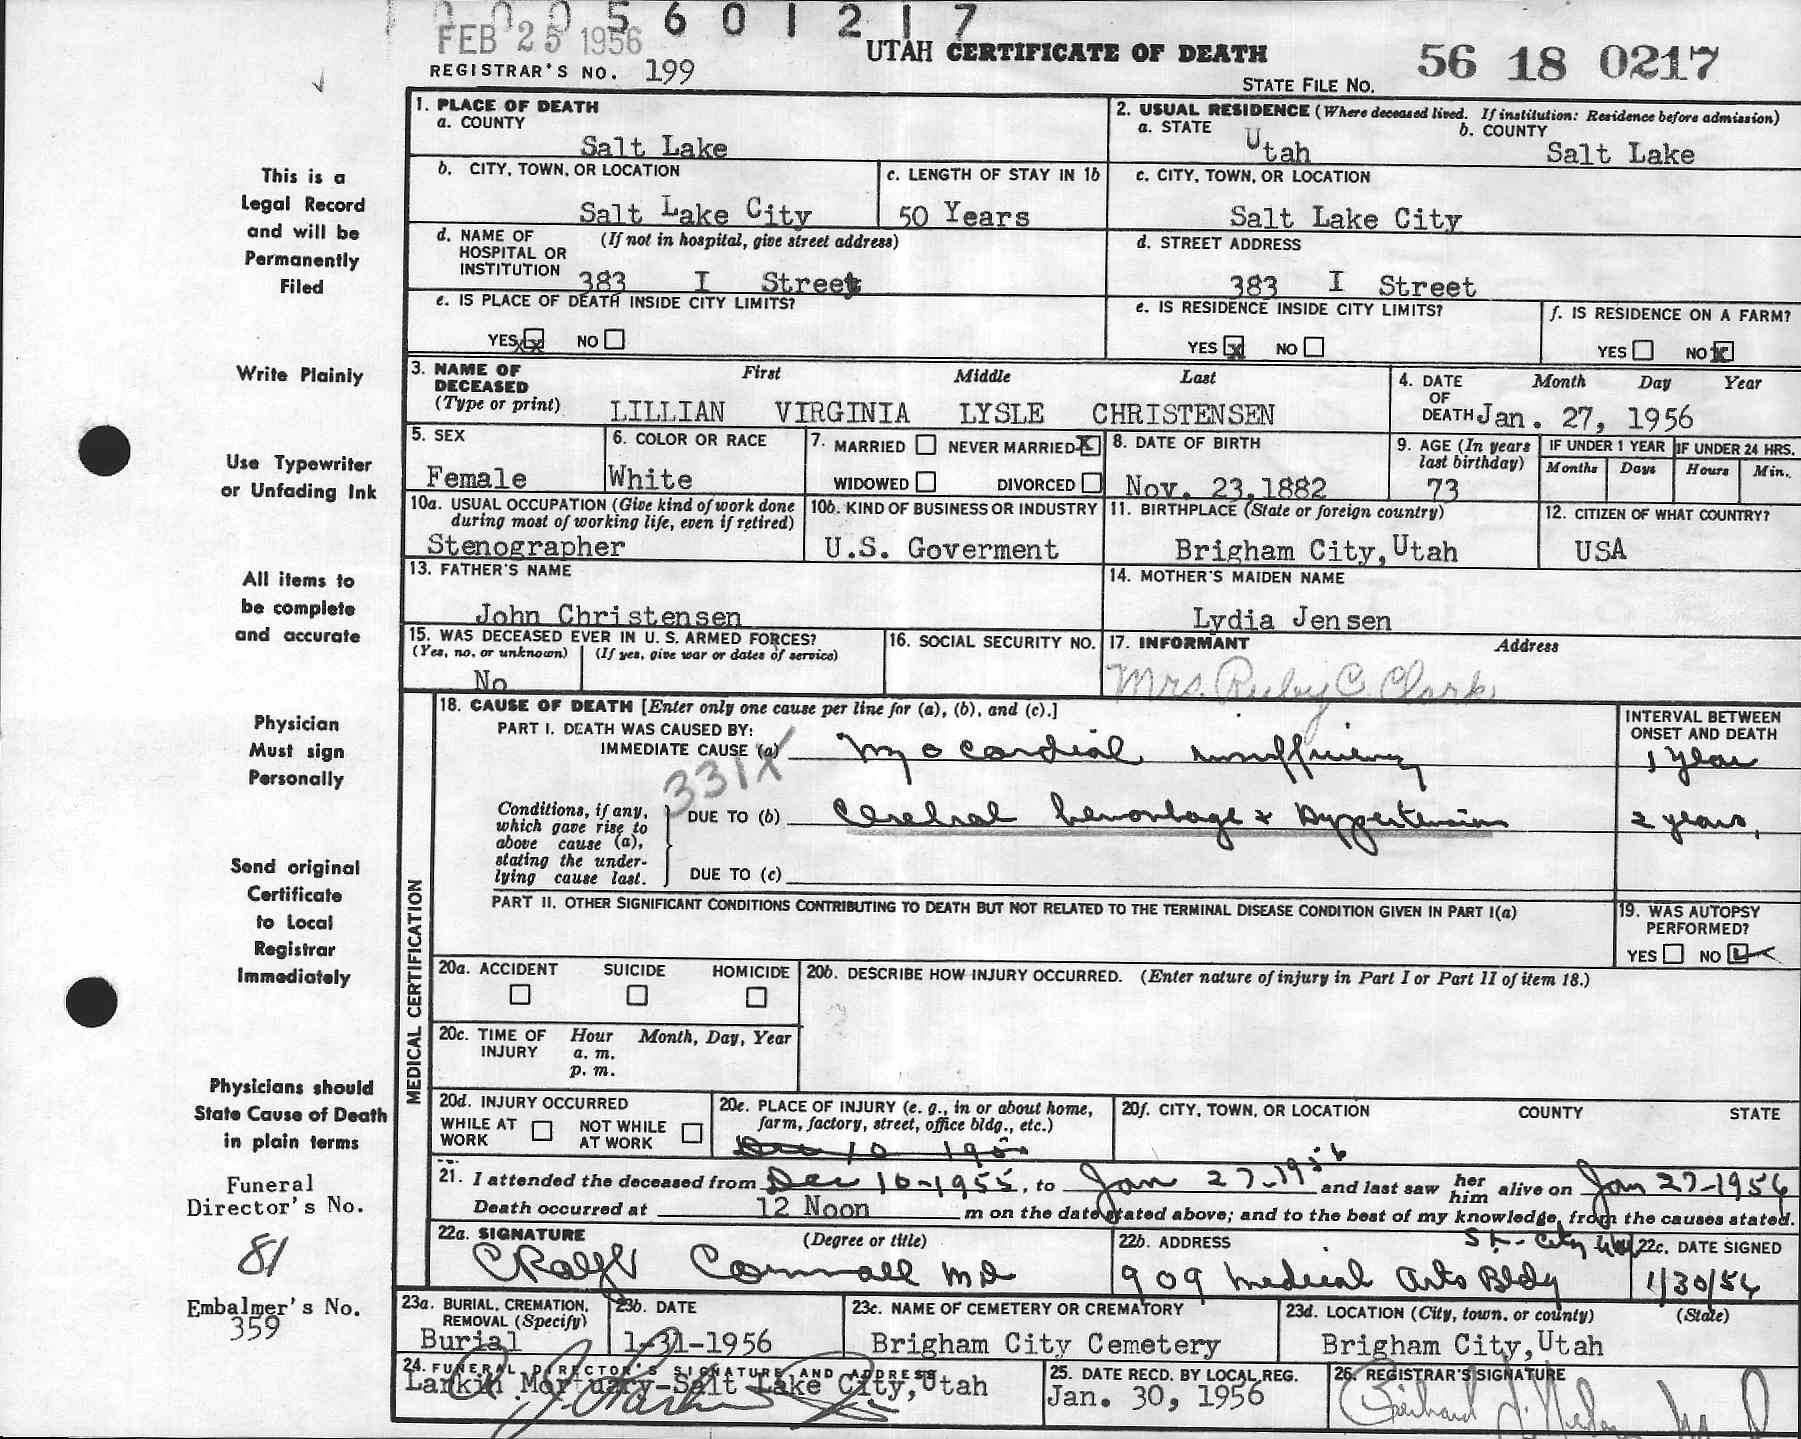 0 0 0 5 6 0 1 2 1 7
FEB 25 1956
UTAH CERTIFICATE OF DEATH
56 18 0217
REGISTRAR'S NO. 199
STATE FILE NO.
This is a
Legal Record
and will be
Permanently
Filed
Write Plainly
Use Typewriter
or Unfading Ink
All items to
be complete
and accurate
Physician
Must sign
Personally
Send original
Certificate
to Local
Registrar
Immediately
Physicians should
State Cause of Death
in plain terms
Funeral
Director's No.
81
Embalmer's No.
359
1. PLACE OF DEATH
a. COUNTY
Salt Lake
2. USUAL RESIDENCE (Where deceased lived. If institution: Residence before admission)
a. STATE Utah b. COUNTY Salt Lake
b. CITY, TOWN, OR LOCATION
Salt Lake City
c. LENGTH OF STAY IN 1b
50 Years
c. CITY, TOWN, OR LOCATION
Salt Lake City
d. NAME OF HOSPITAL OR INSTITUTION (If not in hospital, give street address)
383 I Street
d. STREET ADDRESS
383 I Street
e. IS PLACE OF DEATH INSIDE CITY LIMITS?
YES X NO
e. IS RESIDENCE INSIDE CITY LIMITS?
YES X NO
f. IS RESIDENCE ON A FARM?
YES NO X
3. NAME OF DECEASED (Type or print) First Middle Last
LILLIAN VIRGINIA LYSLE CHRISTENSEN
4. DATE OF DEATH Month Day Year
Jan. 27, 1956
5. SEX
Female
6. COLOR OR RACE
White
7. MARRIED NEVER MARRIED X
WIDOWED DIVORCED
8. DATE OF BIRTH
Nov. 23,1882
9. AGE (In years last birthday)
73
IF UNDER 1 YEAR
Months Days
IF UNDER 24 HRS.
Hours Min.
10a. USUAL OCCUPATION (Give kind of work done during most of working life, even if retired)
Stenographer
10b. KIND OF BUSINESS OR INDUSTRY
U.S. Goverment
11. BIRTHPLACE (State or foreign country)
Brigham City,Utah
12. CITIZEN OF WHAT COUNTRY?
USA
13. FATHER'S NAME
John Christensen
14. MOTHER'S MAIDEN NAME
Lydia Jensen
15. WAS DECEASED EVER IN U. S. ARMED FORCES?
(Yes, no, or unknown) (If yes, give war or dates of service)
No
16. SOCIAL SECURITY NO.
17. INFORMANT Address
Mrs. Ruby C. Clark
MEDICAL CERTIFICATION
18. CAUSE OF DEATH [Enter only one cause per line for (a), (b), and (c).]
PART I. DEATH WAS CAUSED BY:
IMMEDIATE CAUSE (a) Myocardial insufficiency
331X
INTERVAL BETWEEN ONSET AND DEATH
1 year
Conditions, if any, which gave rise to above cause (a), stating the underlying cause last.
DUE TO (b) Cerebral hemorrhage & Hypertension
2 years,
DUE TO (c)
PART II. OTHER SIGNIFICANT CONDITIONS CONTRIBUTING TO DEATH BUT NOT RELATED TO THE TERMINAL DISEASE CONDITION GIVEN IN PART I(a)
19. WAS AUTOPSY PERFORMED?
YES NO
20a. ACCIDENT SUICIDE HOMICIDE
20b. DESCRIBE HOW INJURY OCCURRED. (Enter nature of injury in Part I or Part II of item 18.)
20c. TIME OF INJURY Hour Month, Day, Year
a. m.
p. m.
20d. INJURY OCCURRED
WHILE AT WORK NOT WHILE AT WORK
20e. PLACE OF INJURY (e. g., in or about home, farm, factory, street, office bldg., etc.)
20f. CITY, TOWN, OR LOCATION COUNTY STATE
21. I attended the deceased from Dec 10-1955, to Jan 27-1956 and last saw her him alive on Jan 27-1956
Death occurred at 12 Noon m on the date stated above; and to the best of my knowledge, from the causes stated.
22a. SIGNATURE (Degree or title)
C Ralph Cornwall MD
22b. ADDRESS
909 Medical Arts Bldg
22c. DATE SIGNED
1/30/56
23a. BURIAL, CREMATION, REMOVAL (Specify)
Burial
23b. DATE
1-31-1956
23c. NAME OF CEMETERY OR CREMATORY
Brigham City Cemetery
23d. LOCATION (City, town, or county) (State)
Brigham City,Utah
24. FUNERAL DIRECTOR'S SIGNATURE AND ADDRESS
Larkin Mortuary-Salt Lake City,Utah
25. DATE RECD. BY LOCAL REG.
Jan. 30, 1956
26. REGISTRAR'S SIGNATURE